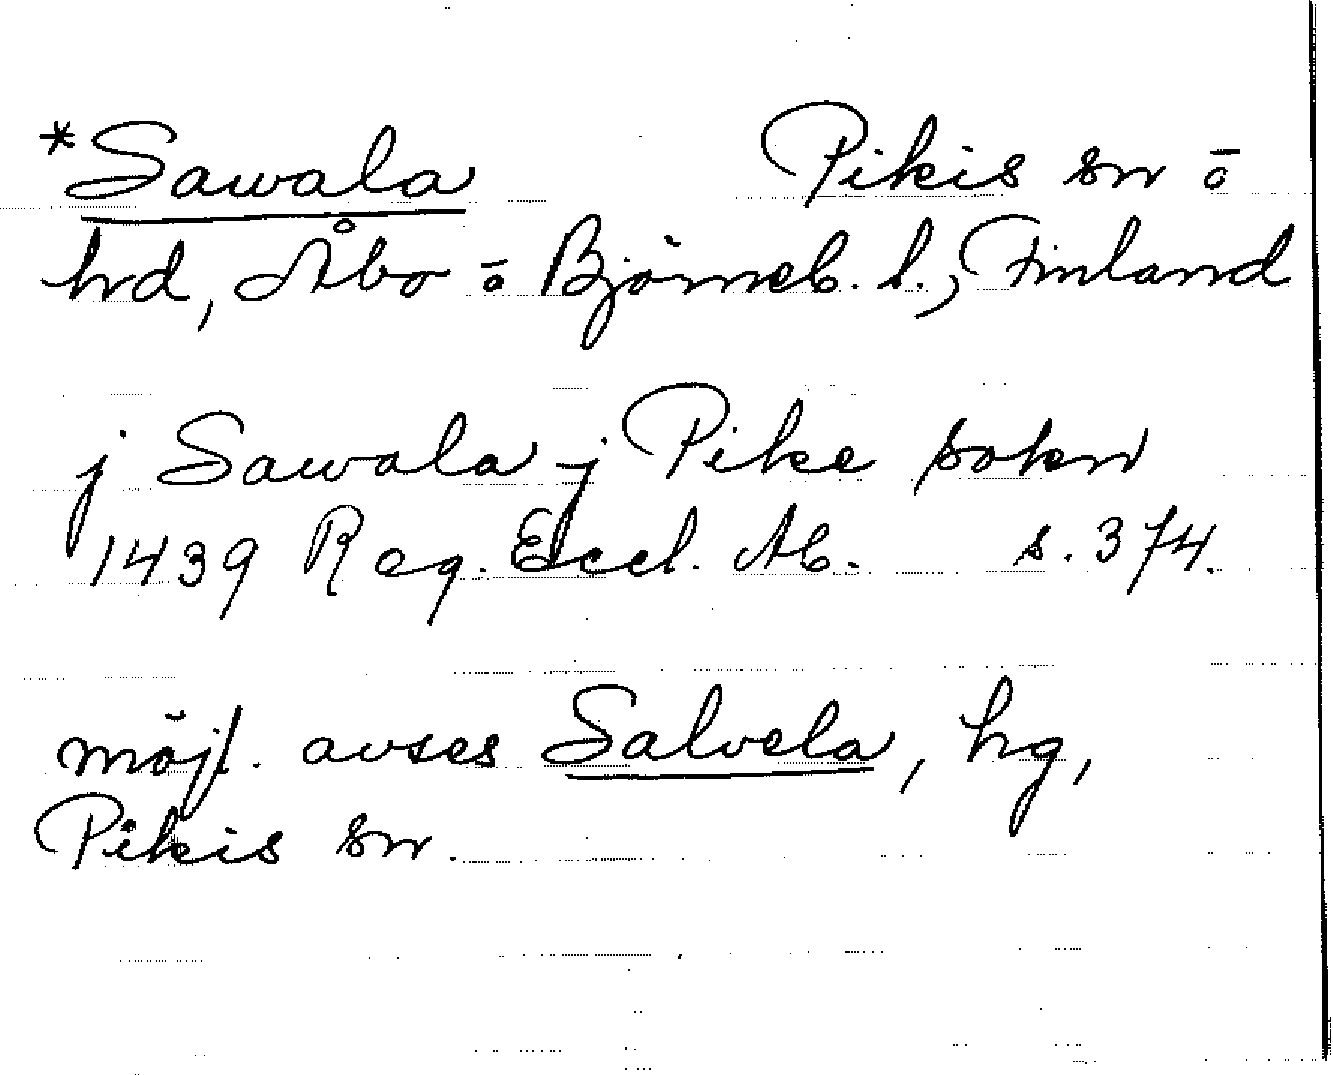 *Sawala Pikis sn ō
hd, Åbo ō Björneb. l., Finland
j Sawala j Pike sokn
1439 Reg. Eccl. Ab. s. 374.
möjl. avses Salvela, hg,
Pikis sn.